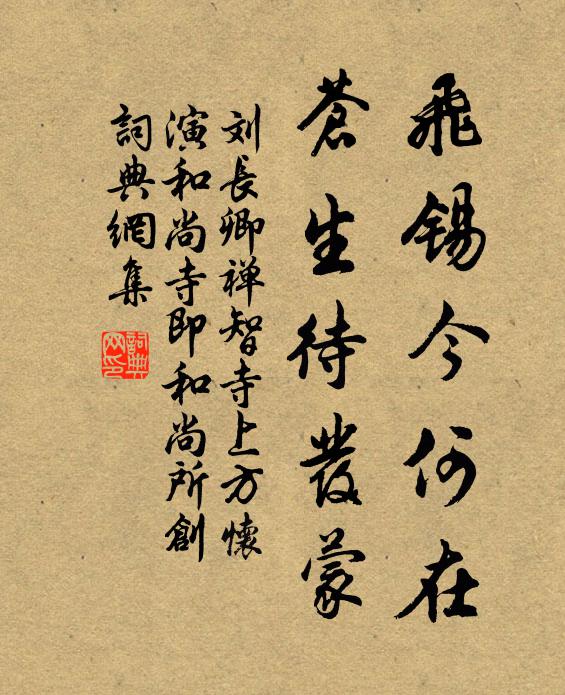 飛錫今何在
蒼生待發蒙
刘長卿禅智寺上方懷
演和尚寺即和尚所創
詞典網集
詞典网印